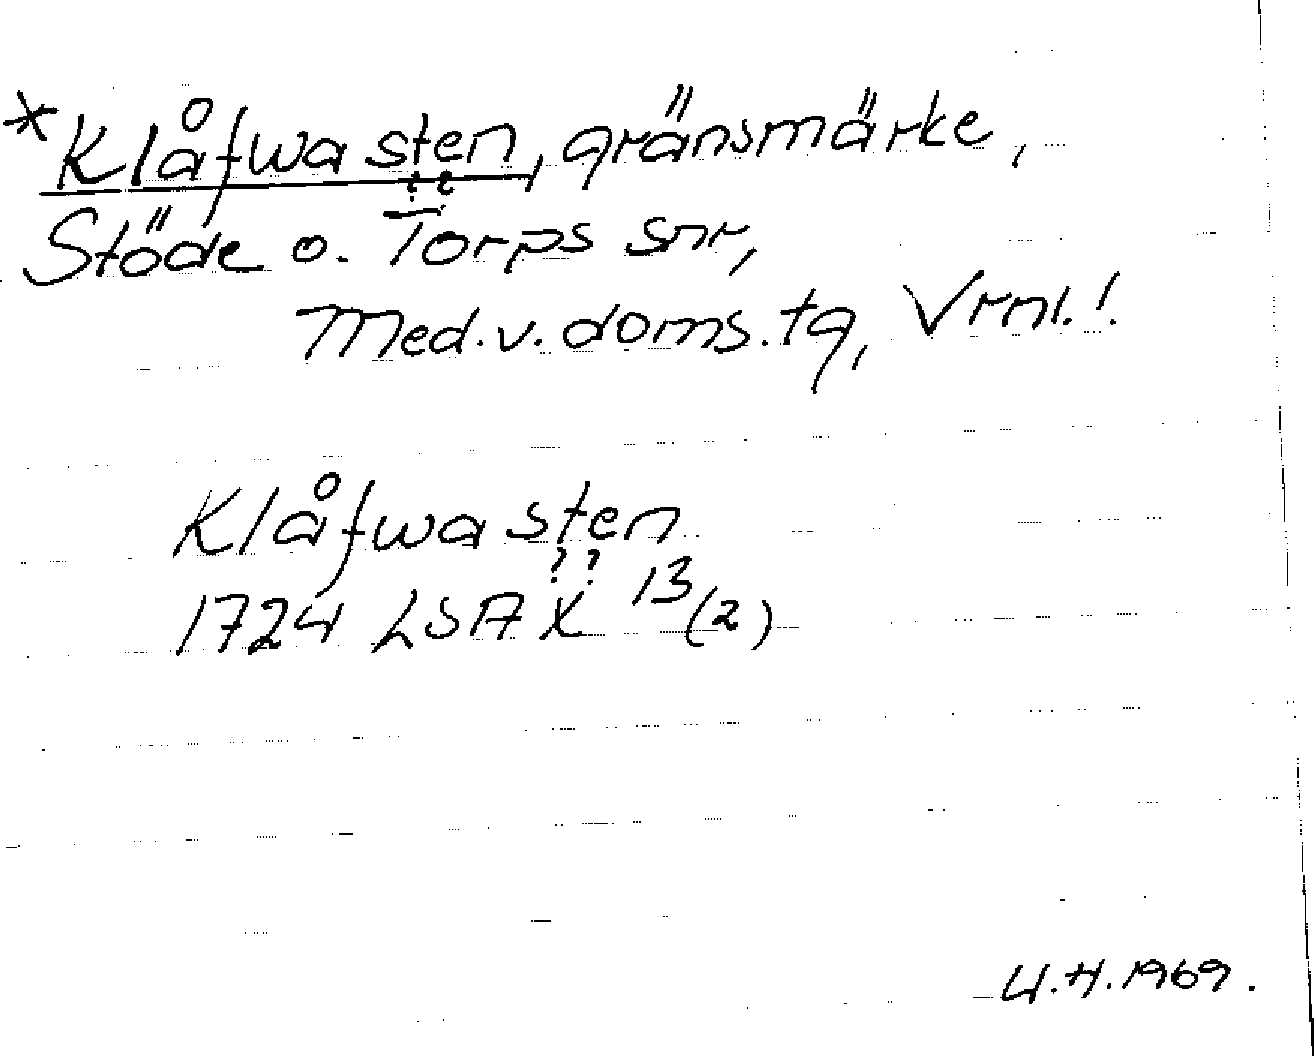 *Klåfwa sten, gränsmärke,
? ?
Stöde o. Torps snr,
Med.v.doms.tg, Vrnl.!
Klåfwa sten
? ?
1724 LSA X 13(2)
U.H.1969.